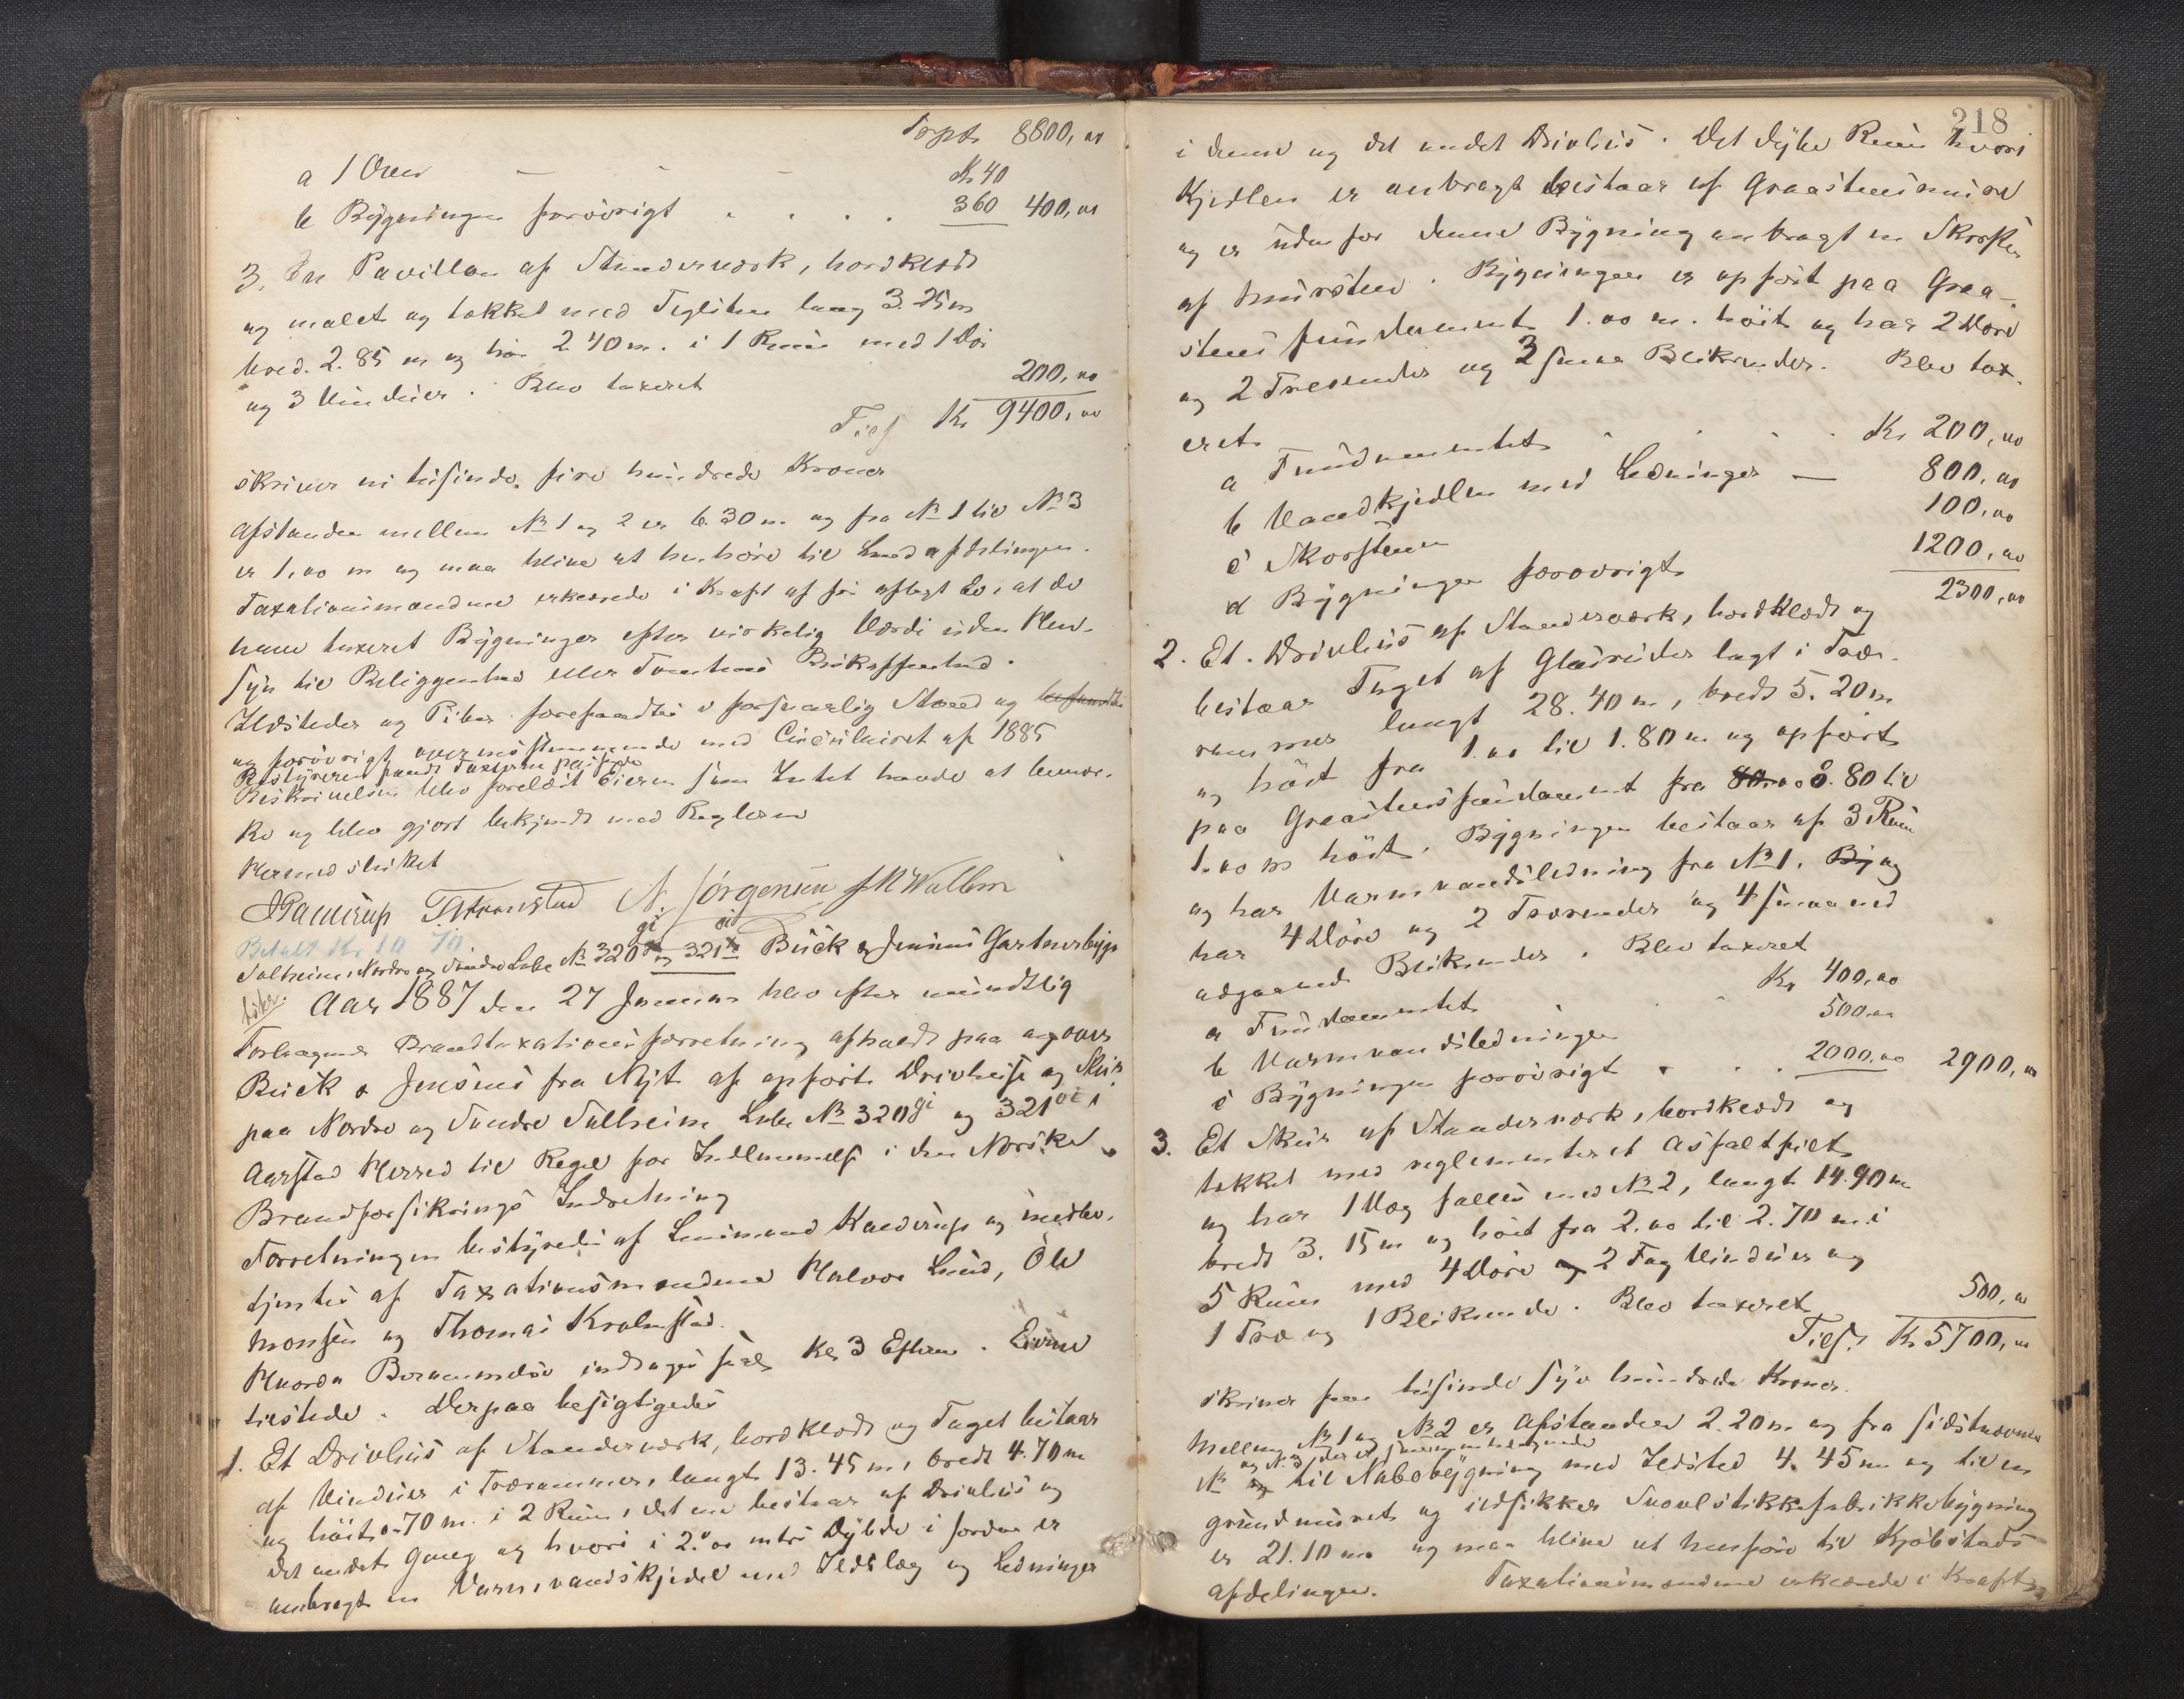 Trspt 8800,00
a 1 Oven - - - Kr 40
b Bygningen forøvrigt . . . . 360 400,00
3. En Pavillon af Stenderværk, bordklædt
og malet og tækket med Tegelsten lang 3.25 m
bred. 2.85 m og høi 2.40 m. i 1 Rum med 1 Dør
og 3 Vinduer. Blev taxeret 200,00
Tils Kr 9400,00
skriver ni tusinde fire hundrede Kroner
Afstanden mellem No 1 og 2 er 6.30 m. og fra No 1 til No 3
er 1,00 m og maa blive at henføre til Landafdelingen.
Taxationsmændene erklærede i Kraft af sin aflagt Ed, at de
have taxeret Bygninger efter virkelig Værdi uden Hen-
syn til Beliggenhed eller Tomtens Beskaffenhed.
Ildsteder og Piber forefandtes i forsvarlig Stand og befandtes
og forøvrigt overensstemmende med Circulairet af 1885
Bestyreren fandt Taxten passende
Beskrivelsen blev forelæst Eieren som Intet havde at bemær-
ke og blev gjort bekjendt med Reglerne
Hermed sluttet
Kaurup T. Kronstad N. Jørgensen J M Wallem
Betalt Kr 10 70
Solheim, Nordre og Søndre Lobe No 320 gi og 321 oi Buck & Jensens Gartnerbygn
Aar 1887 den 27 Januar blev efter mundtlig
Forlangende Brandtaxationsforretning afholdt paa a
Buck & Jensens fra Nyt af opførte Drivhuse og Skur
paa Nordre og Søndre Solheim Lobe No 320 gi og 321 oi i
Aarstad Herred til Regel for Indlemmelse i den Norske
Brandforsikrings Indretning
Forretningen bestyredes af Lensmand Kaurup og medbe-
tjentes af Taxationsmændene Halvor Lund, Ole
Monsen og Thomas Kronstad.
Hvorda Berammelse indtages skal Kl 3 Efterm. Eierne
tilstede. Derpaa besigtigedes
1. Et Drivhus af Stenderværk, bordklædt og Taget bestaar
af Vinduer i Trærammer, langt 13.45 m, bredt 4.70 m
og høit 0.70 m. i 2 Rum, det ene bestaar af Drivhus og
det andet Gang og hvori i 2.00 mtrs Dybde i Jorden er
anbragt en Varmvandskjedel med Ildslæg og Ledninger
218
i denne og det andet Drivhus. Det dybe Rum hvori
Kjedlen er anbragt bestaar af Graastensmure
og er udenfor denne Bygning anbragt en Skorsten
af Mursten. Bygningen er opført paa Graa-
stens fundament 1.00 m. høit og har 2 Døre
og 2 Trerender og 2 smaa Blikrender. Blev tax-
eret
a Fundamentet . . . Kr 200,00
b Vandkjedlen med Ledninger — 800,00
c Skorstenen 100,00
d Bygningen forøvrigt 1200,00
2300,00
2. Et Drivhus af Stenderværk, bordklædt og
bestaar Taget af Glasruder lagt i Træ-
rammer langt 28.40 m, bredt 5.20 m
og høit fra 1.00 til 1.80 m og opført
paa Graastensfundament fra 0.80 til
1.00 m høit. Bygningen bestaar af 3 Rum
og har Varmvandsledning fra No 1. By og
har 4 Døre og 2 Trærender og 4 smaa ned
adgaaende Blikrender. Blev taxeret
a Fundamentet Kr 400,00
b Varmvandsledningen 500,00
c Bygningen forøvrigt . . . 2000,00 2900,00
3. Et Skur af Stenderværk, bordklædt og
tækket med reglementeret Asfaltfilt
og har 1 Væg fælles med No 2, langt 14.90 m
bredt 3.15 m og høit fra 2.00 til 2.70 m. i
5 Rum med 4 Døre og 2 Fag Vinduer og
1 Træ og 1 Blikrende. Blev taxeret 500,00
Tils. Kr 5700,00
skriver fem tusinde syv hundrede Kroner.
Mellem No 1 og No 2 er Afstanden 2.20 m og fra sidstnævnte
og No 3, der er sammenbyggede
No til Nabobygning med Ildsted 4.45 m og til en
grundmuret og ildsikker Svovlstikkefabrikkebygning
er 21.10 m og maa blive at henføre til Kjøbstads
afdelingen. Taxationsmændene erklærede i Kraft